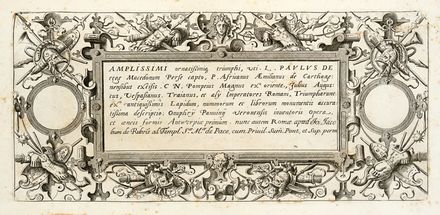 AMPLISSIMI ornatissimiq triumphi, uti L. PAVLVS DE
rege Macedonum Perse capto, P. Africanus Æmilianus de Carthag:
nensibus excisis. C N. Pompeius Magnus ex oriente, Julius Augus:
tus, Vespasianus, Traianus, et alij Imperatores Romani, Triumpharunt
ex antiquissimis Lapidum, nummorum et librorum monumentis accura
tissima descriptio. Onuphrij Panuinij Veronensis inventoris opera,
et æneis formis Antverpiæ primum nunc autem Romæ apud Io. Iaco
bum de Rubeis ad Templ. S.ta M.a de Pace, cum Privil. Sum. Pont. et Sup. perm